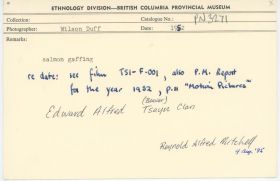 ETHNOLOGY DIVISION—BRITISH COLUMBIA PROVINCIAL MUSEUM
Collection: Catalogue No.: PN 3271
Photographer: Wilson Duff Date: 1952
Remarks:
salmon gaffing
re date: see film TSI-F-001, also P.M. Report
for the year 1952, p.11 "Motion Pictures"
(Beaver)
Edward Alfred Tsayu Clan
Reynold Alfred Mitchell
4 Aug. '95